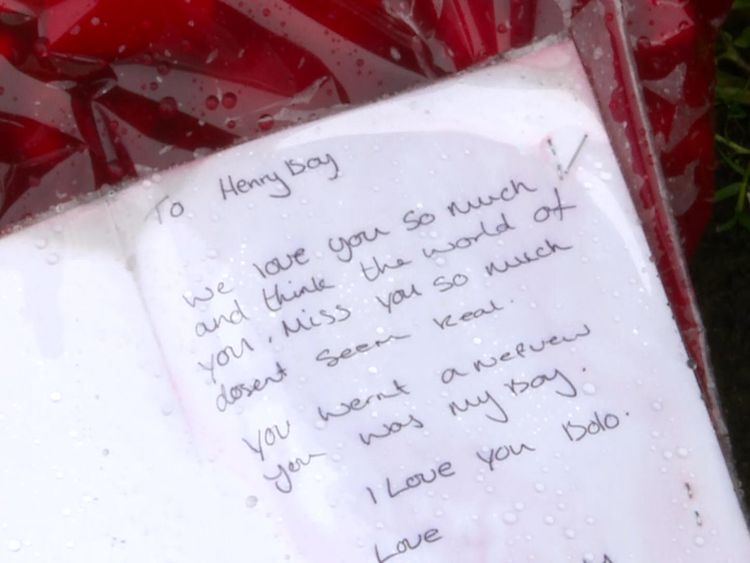 To Henry Boy
we love you so much
and think the world of
you. Miss you so much
dosent seem real.
you wernt a nefvew
you was my Boy.
I Love you Bolo.
Love